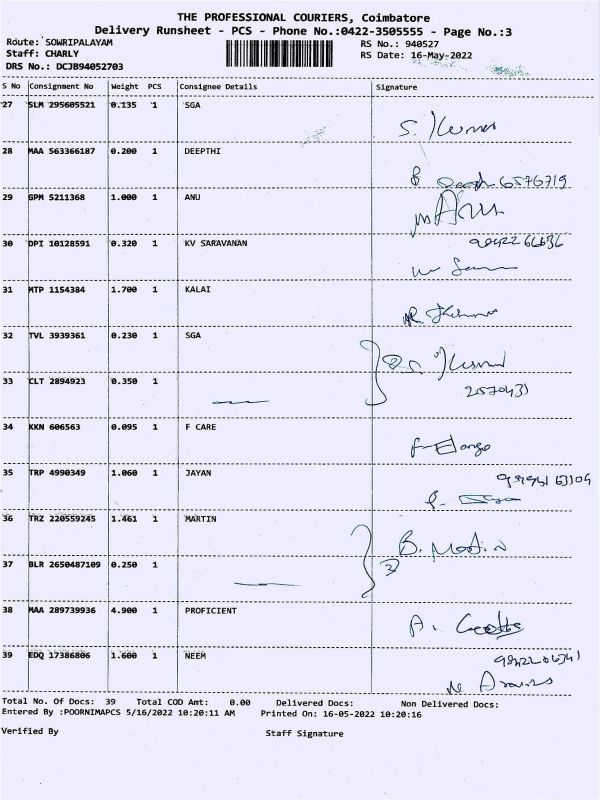 THE PROFESSIONAL COURIERS, Coimbatore
Delivery Runsheet - PCS - Phone No.:0422-3505555 - Page No.:3
Route: SOWRIPALAYAM RS No.: 940527
Staff: CHARLY RS Date: 16-May-2022
DRS No.: DCJB94052703
S No Consignment No Weight PCS Consignee Details Signature
27 SLM 295605521 0.135 1 SGA
S. Kumar
28 MAA 563366187 0.200 1 DEEPTHI
6576719
29 GPM 5211368 1.000 1 ANU
30 DPI 10128591 0.320 1 KV SARAVANAN
31 MTP 1154384 1.700 1 KALAI
32 TVL 3939361 0.230 1 SGA
33 CLT 2894923 0.350 1
34 KKN 606563 0.095 1 F CARE
35 TRP 4990349 1.060 1 JAYAN
36 TRZ 220559245 1.461 1 MARTIN
B. Martin
37 BLR 2650487109 0.250 1
38 MAA 289739936 4.900 1 PROFICIENT
39 EDQ 17386806 1.600 1 NEEM
Total No. Of Docs: 39 Total COD Amt: 0.00 Delivered Docs: Non Delivered Docs:
Entered By :POORNIMAPCS 5/16/2022 10:20:11 AM Printed On: 16-05-2022 10:20:16
Verified By Staff Signature